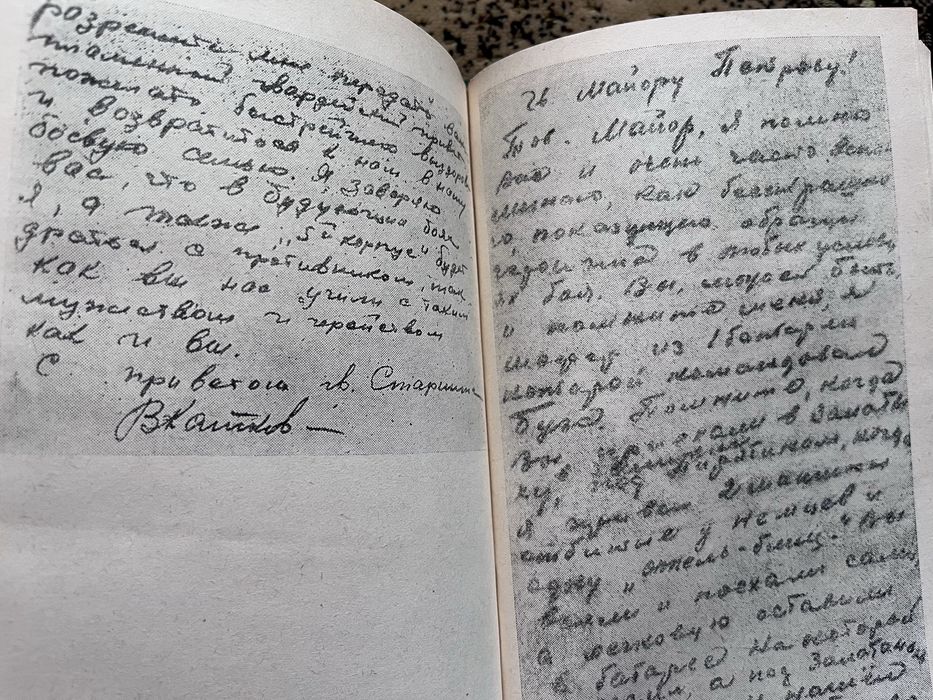 розрешите мне передать вам
пламенный гвардейский привет
пожелать быстрейшего выздоров
и возвратиться к нам в нашу
боевую семью. Я заверяю
вас, что в будущих боях
я, а также „5й корпус" будет
драться с противником, так
как вы нас учили с таким
мужеством и геройством
как и вы.
С
приветом гв. Старшина
ВКатков
Гв Майору Петрову!
Тов. Майор, я помню
вас и очень часто вспо
минаю, как бесстрашно
го, показующего образцы
героизма в любых услови
ях боя. Вы, может быть
и помните меня, я
из 1 батареи
которой командовал
Помните, когда
вы приехали в
ку, под Пирятином, когда
я 2 машины
отбитые у немцев и
одну „опель-блиц." Вы
взяли и поехали сами
а легковую оставили
в батарее на которой
а под